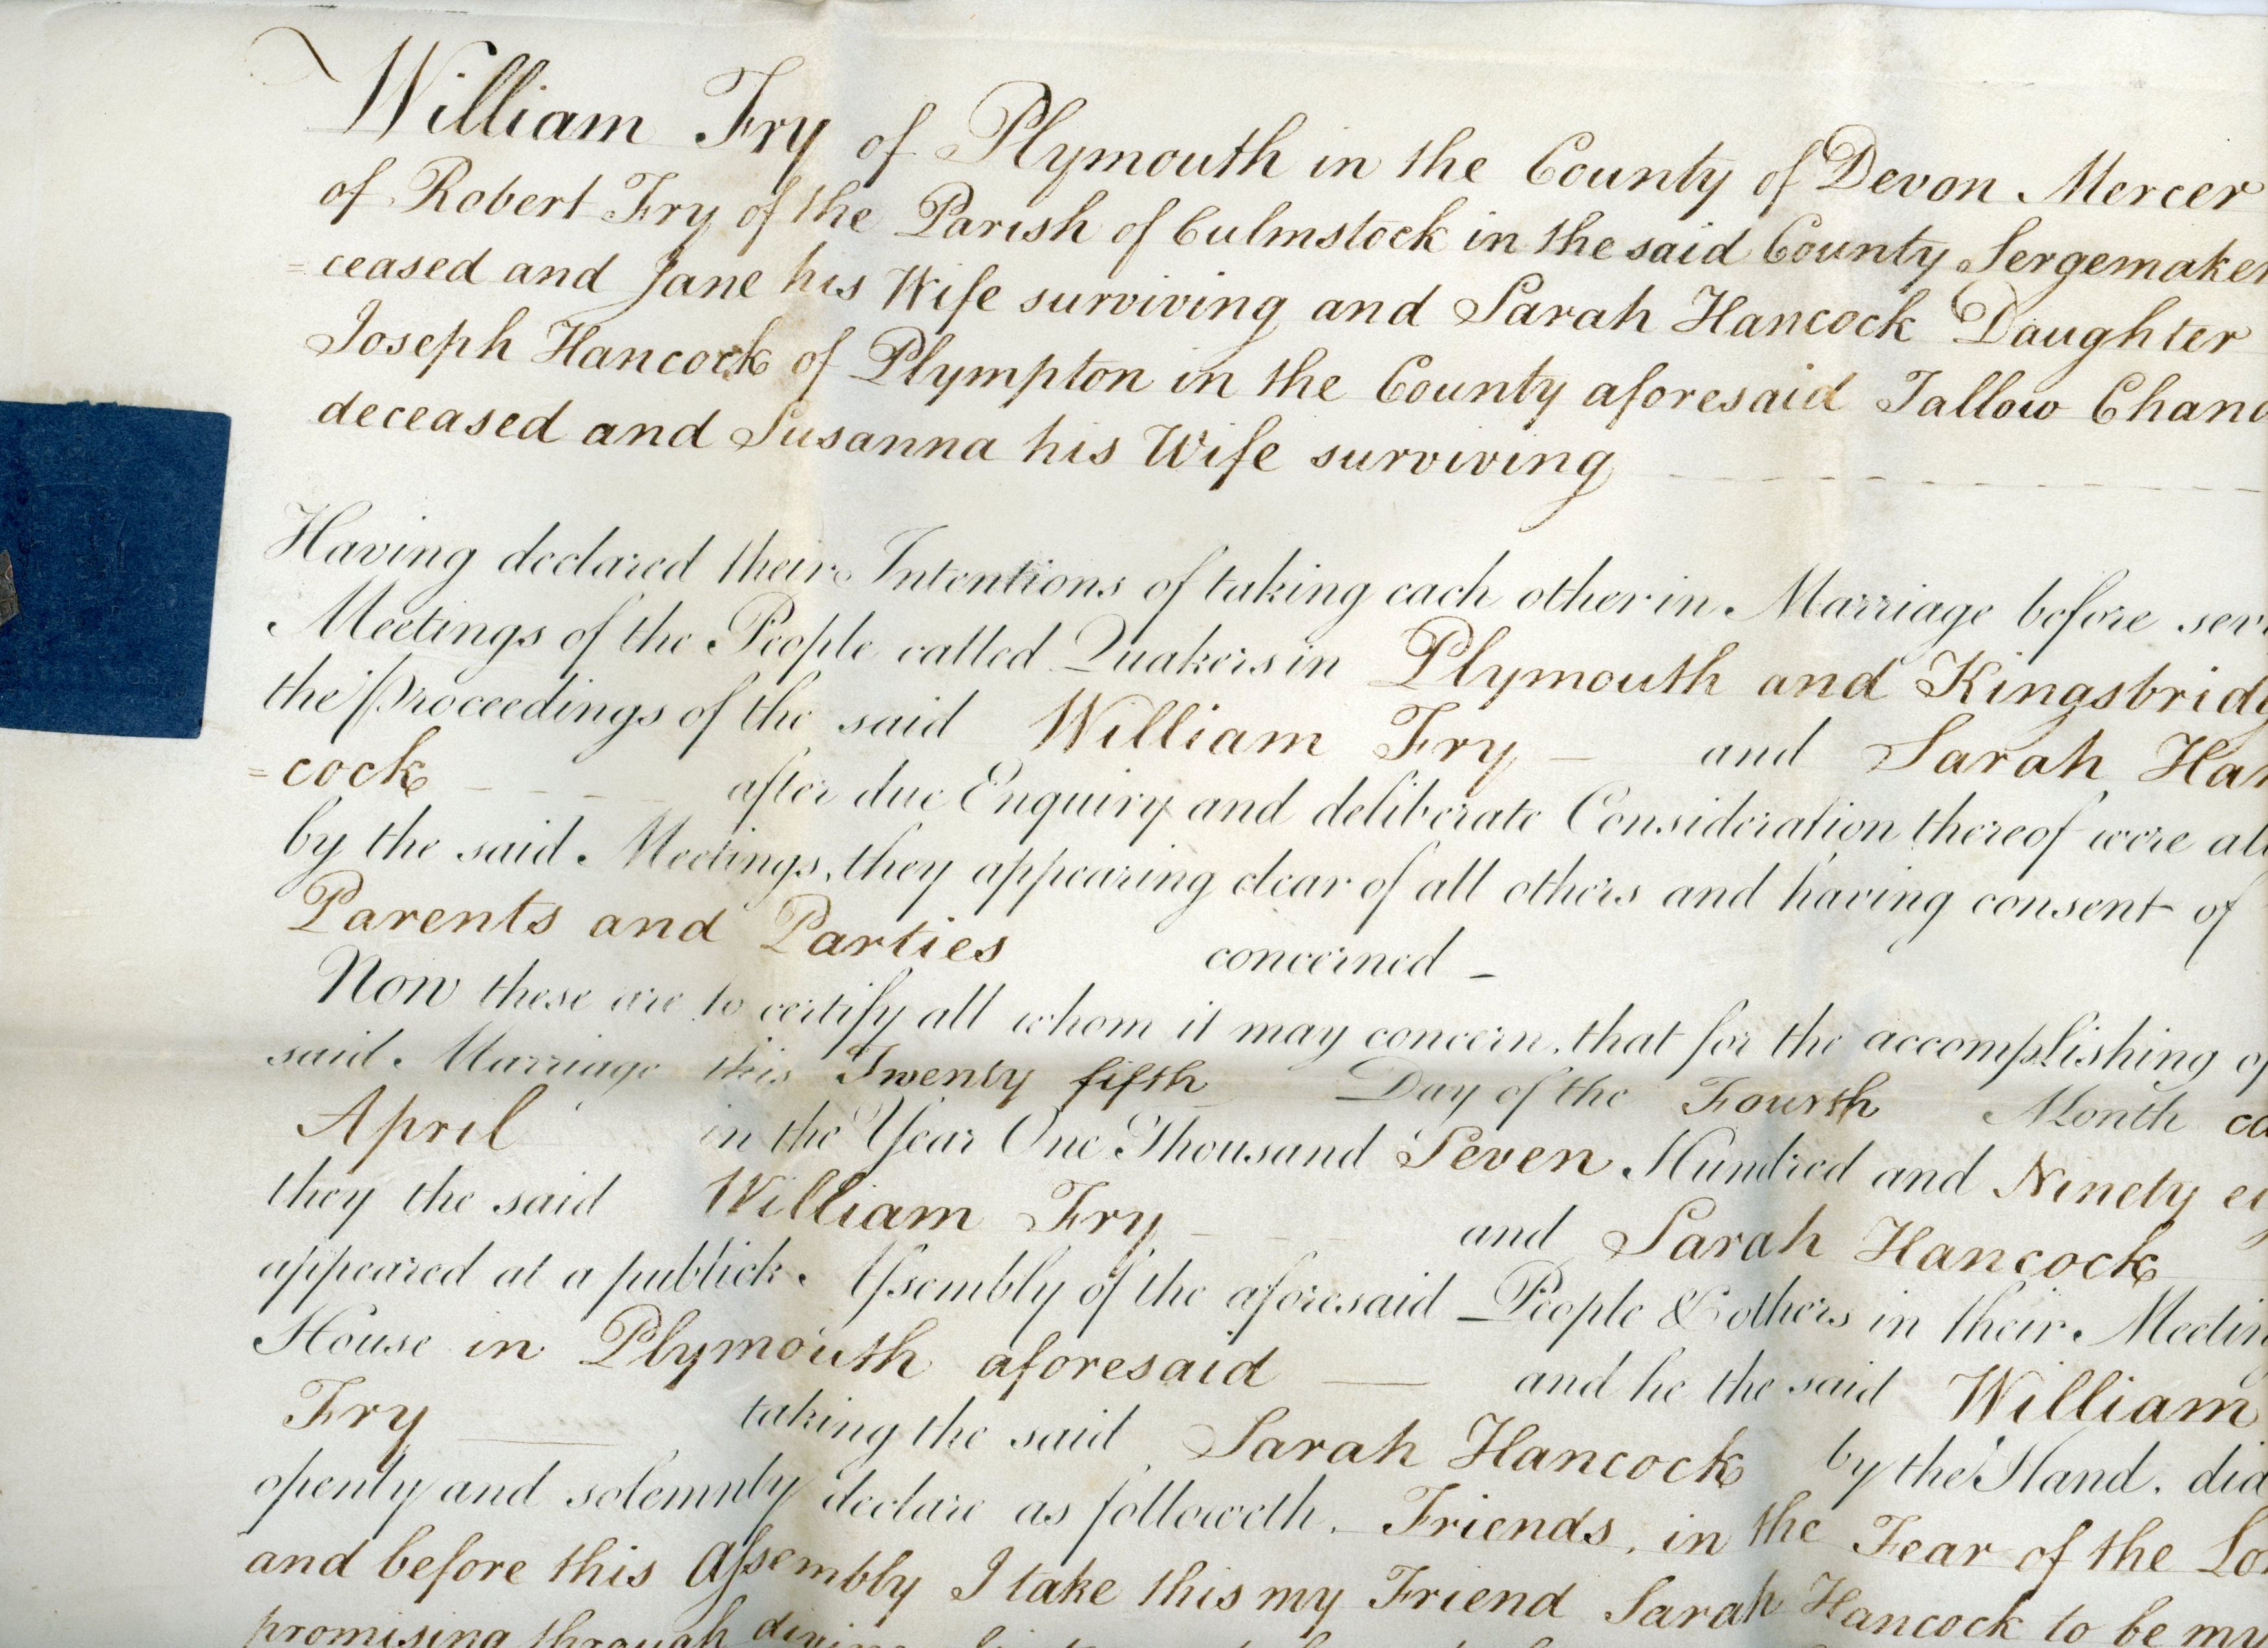 William Fry of Plymouth in the County of Devon Mercer
of Robert Fry of the Parish of Culmstock in the said County Sergemaker
=ceased and Jane his Wife surviving and Sarah Hancock Daughter
Joseph Hancock of Plympton in the County aforesaid Tallow Chan
deceased and Susanna his Wife surviving
Having declared their Intentions of taking each other in Marriage before sev
Meetings of the People called Quakers in Plymouth and Kingsbrid
the Proceedings of the said William Fry — and Sarah Han
=cock - - - - after due Enquiry and deliberate Consideration thereof were all
by the said Meetings, they appearing clear of all others and having consent of
Parents and Parties concerned —
Now these are to certify all whom it may concern, that for the accomplishing of
said Marriage this Twenty fifth Day of the Fourth Month ca
April in the Year One Thousand Seven Hundred and Ninety ei
they the said William Fry and Sarah Hancock
appeared at a publick Assembly of the aforesaid People & others in their Meetin
House in Plymouth aforesaid — and he the said William
Fry — taking the said Sarah Hancock by the Hand, did
openly and solemnly declare as followeth. Friends, in the Fear of the Lo
and before this Assembly I take this my Friend Sarah Hancock to be my
promising through divine